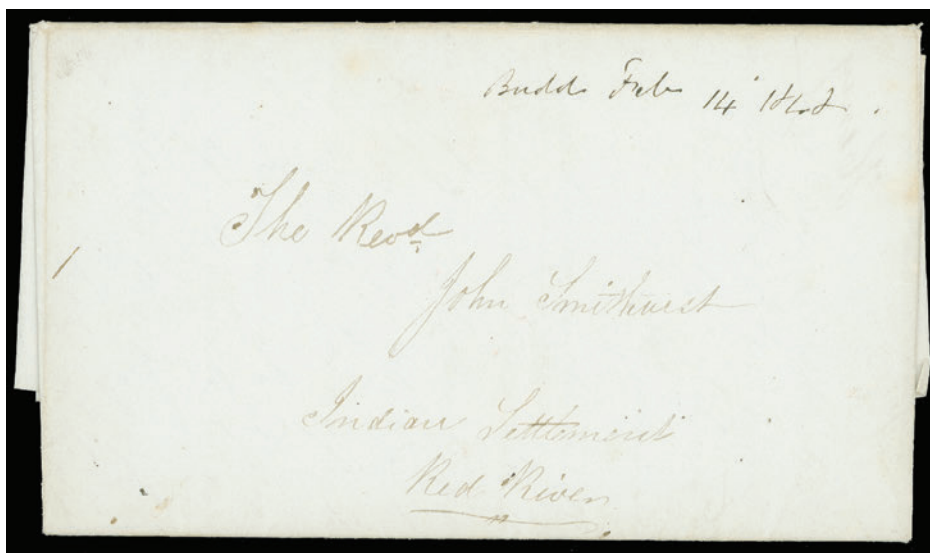 Budd Feb 14 1848.
The Revd
John Smithurst
Indian Settlement
Red River